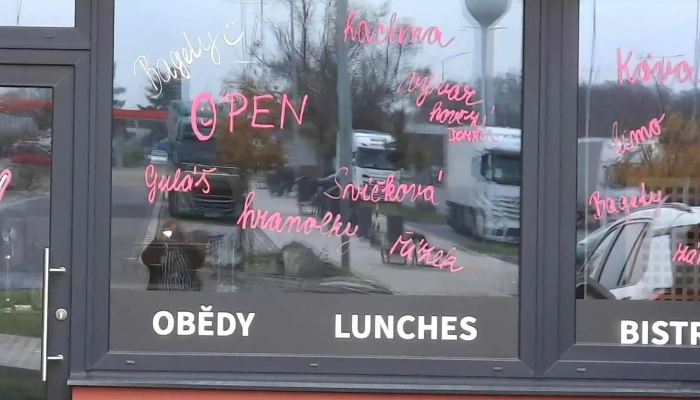 Bagety
Kachna
OPEN
vývar
hovězí
Guláš
Svíčková
hranolky
řízek
OBĚDY
LUNCHES
limo
Bagety
BISTR